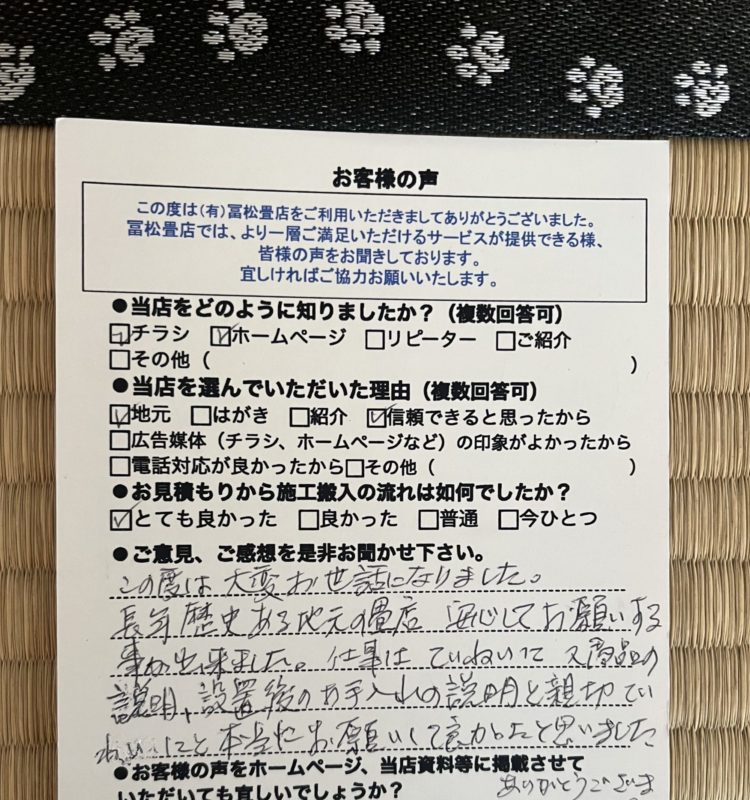 お客様の声
この度は(有)冨松畳店をご利用いただきましてありがとうございました。
冨松畳店では、より一層ご満足いただけるサービスが提供できる様、
皆様の声をお聞きしております。
宜しければご協力お願いいたします。
●当店をどのように知りましたか?(複数回答可)
☑チラシ ☑ホームページ □リピーター □ご紹介
□その他( )
●当店を選んでいただいた理由(複数回答可)
☑地元 □はがき □紹介 ☑信頼できると思ったから
□広告媒体(チラシ、ホームページなど)の印象がよかったから
□電話対応が良かったから□その他( )
●お見積もりから施工搬入の流れは如何でしたか?
☑とても良かった □良かった □普通 □今ひとつ
●ご意見、ご感想を是非お聞かせ下さい。
この度は大変お世話になりました。
長年歴史ある地元の畳店 安心してお願いする
事が出来ました。仕事はていねいで 又商品の
説明、設置後のお手入れの説明と親切てい
ねい 本当にお願いして良かったと思いました
●お客様の声をホームページ、当店資料等に掲載させて
ありがとうございま
いただいても宜しいでしょうか?